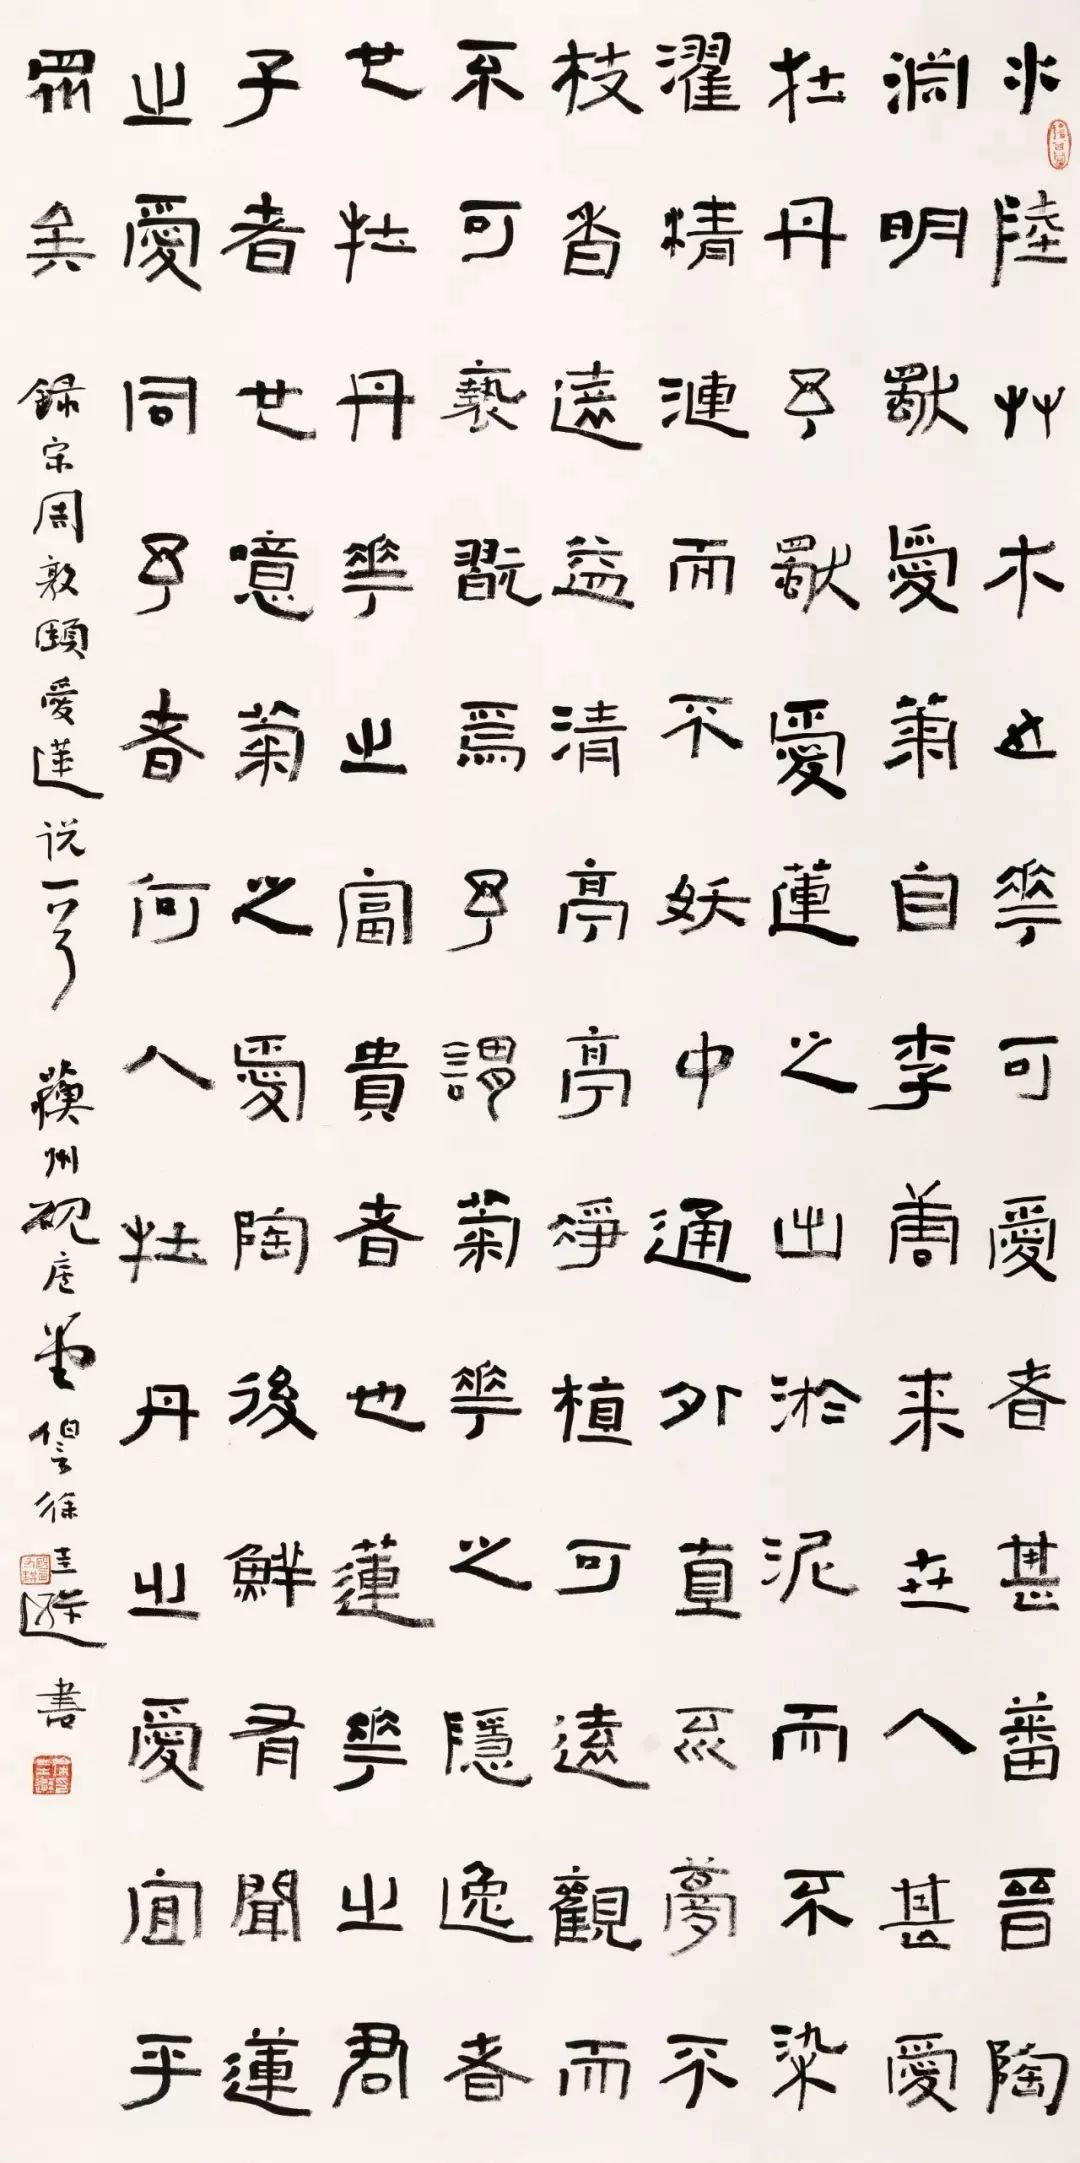 水陸艸木之華可愛者甚蕃晉陶
淵明獨愛菊自李唐來世人甚愛
牡丹予獨愛蓮之出淤泥而不染
濯清漣而不妖中通外直不蔓不
枝香遠益清亭亭淨植可遠觀而
不可褻翫焉予謂菊華之隱逸者
也牡丹華之富貴者也蓮華之君
子者也噫菊之愛陶後鮮有聞蓮
之愛同予者何人牡丹之愛宜乎
眾矣 錄宋周敦頤愛蓮说 蘇州硯 徐圭 書